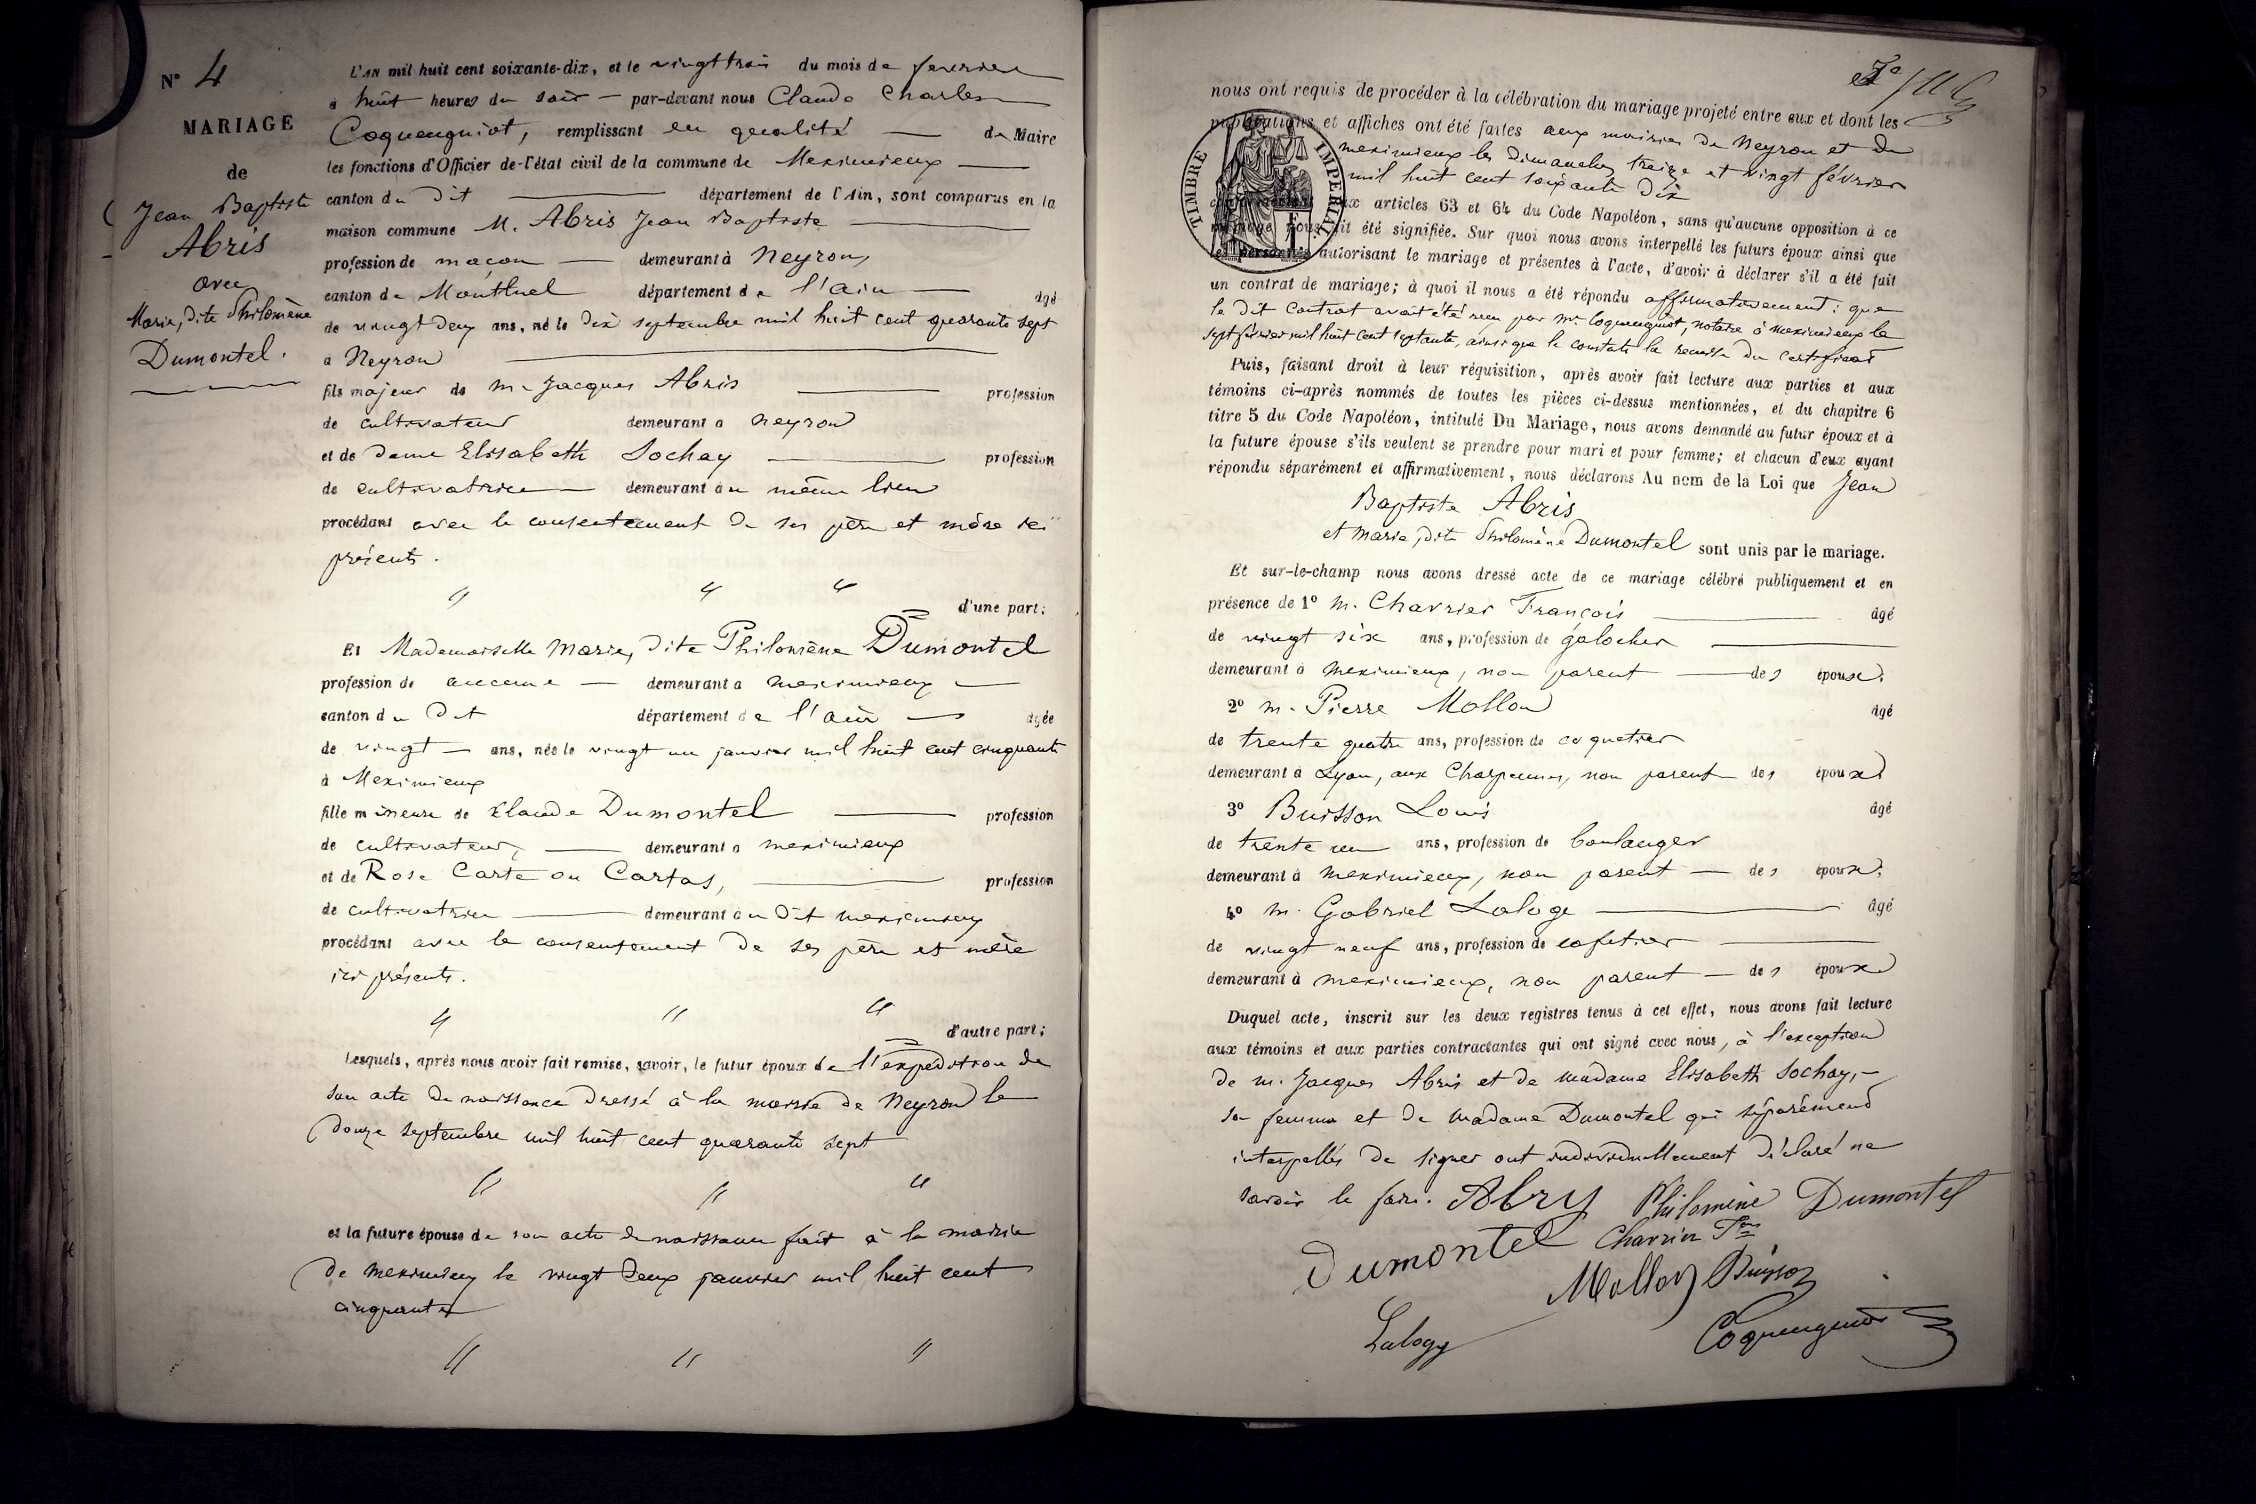 N° 4
MARIAGE
de
Jean Baptiste
Abris
avec
Marie, dite Philomène
Dumontel.
L'AN mil huit cent soixante-dix, et le vingt trois du mois de fevrier
à huit heures du soir — par-devant nous Claude Charles
Coqueugniot, remplissant en qualité — de Maire
les fonctions d'Officier de l'état civil de la commune de Meximieux —
canton du dit — département de l'Ain, sont comparus en la
maison commune M. Abris Jean Baptiste —
profession de maçon — demeurant à Neyron,
canton de Montluel département de l'ain — âgé
de vingt deux ans, né le dix septembre mil huit cent quarante sept
à Neyron —
fils majeur de mr Jacques Abris — profession
de cultivateur demeurant à neyron
et de dame Elisabeth Sochay — profession
de cultivatrice — demeurant au même lieu
procédant avec le consentement de ses père et mère ici
présents.
" " "
d'une part;
Et Mademoiselle Marie, dite Philomène Dumontel
profession de aucune — demeurant à meximieux —
canton du dit département de l'ain — âgée
de vingt — ans, née le vingt un janvier mil huit cent cinquante
à Meximieux
fille mineure de Claude Dumontel — profession
de cultivateur, — demeurant à meximieux
et de Rose Carte ou Cartas, — profession
de cultivatrice — demeurant au dit meximieux
procédant avec le consentement de ses père et mère
ici présents.
" " "
d'autre part;
Lesquels, après nous avoir fait remise, savoir, le futur époux de l'expédition de
son acte de naissance dressé à la mairie de Neyron le
douze septembre mil huit cent quarante sept
" " "
et la future épouse de son acte de naissance fait à la mairie
de meximieux le vingt deux janvier mil huit cent
cinquante
" " "
nous ont requis de procéder à la célébration du mariage projeté entre eux et dont les
publications et affiches ont été faites aux mairies de Neyron et de
meximieux les dimanches treize et vingt février
mil huit cent soixante dix
TIMBRE IMPERIAL
conformément aux articles 63 et 64 du Code Napoléon, sans qu'aucune opposition à ce
mariage nous ait été signifiée. Sur quoi nous avons interpellé les futurs époux ainsi que
les personnes autorisant le mariage et présentes à l'acte, d'avoir à déclarer s'il a été fait
un contrat de mariage; à quoi il nous a été répondu affirmativement: que
le dit contrat avait été reçu par Mr Coqueugniot, notaire à meximieux le
sept février mil huit cent septante, ainsi que le constate la remise du certificat
Puis, faisant droit à leur réquisition, après avoir fait lecture aux parties et aux
témoins ci-après nommés de toutes les pièces ci-dessus mentionnées, et du chapitre 6
titre 5 du Code Napoléon, intitulé Du Mariage, nous avons demandé au futur époux et à
la future épouse s'ils veulent se prendre pour mari et pour femme; et chacun d'eux ayant
répondu séparément et affirmativement, nous déclarons Au nom de la Loi que Jean
Baptiste Abris
et Marie, dite Philomène Dumontel sont unis par le mariage.
Et sur-le-champ nous avons dressé acte de ce mariage célébré publiquement et en
présence de 1° m. Charrier François — âgé
de vingt six ans, profession de galocher —
demeurant à meximieux, non parent — des époux.
2° m. Pierre Mollon âgé
de trente quatre ans, profession de coquetier
demeurant à Lyon, aux Charpennes, non parent des époux
3° Buisson Louis âgé
de trente un ans, profession de boulanger
demeurant à meximieux, non parent — des époux.
4° m. Gabriel Laloge — âgé
de vingt neuf ans, profession de cafetier —
demeurant à meximieux, non parent — des époux
Duquel acte, inscrit sur les deux registres tenus à cet effet, nous avons fait lecture
aux témoins et aux parties contractantes qui ont signé avec nous, à l'exception
de m. Jacques Abris et de madame Elisabeth Sochay, —
sa femme et de madame Dumontel qui séparément
interpellés de signer ont individuellement déclaré ne
savoir le faire. Abry Philomène Dumontel
Dumontel Charrier Fois
Mollon Buisson
Lalogy Coqueugniot